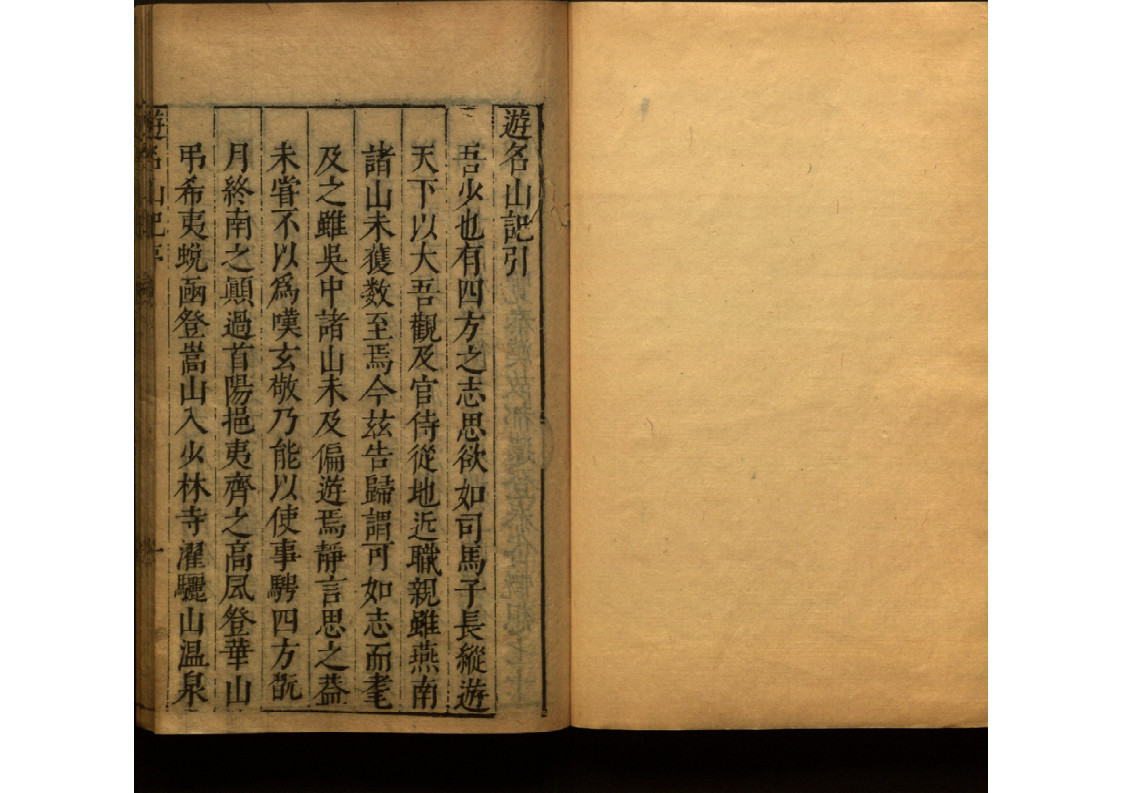 遊名山記引
吾少也有四方之志思欲如司馬子長縱遊
天下以大吾觀及官侍從地近職親雖燕南
諸山未獲数至焉今玆告歸謂可如志而耄
及之雖吳中諸山未及偏遊焉靜言思之葢
未甞不以爲嘆玄敬乃能以使事騁四方翫
月終南之顚過首陽挹夷齊之高風登華山
弔希夷蛻凾登嵩山入少林寺濯驪山温泉
遊名山記序
一